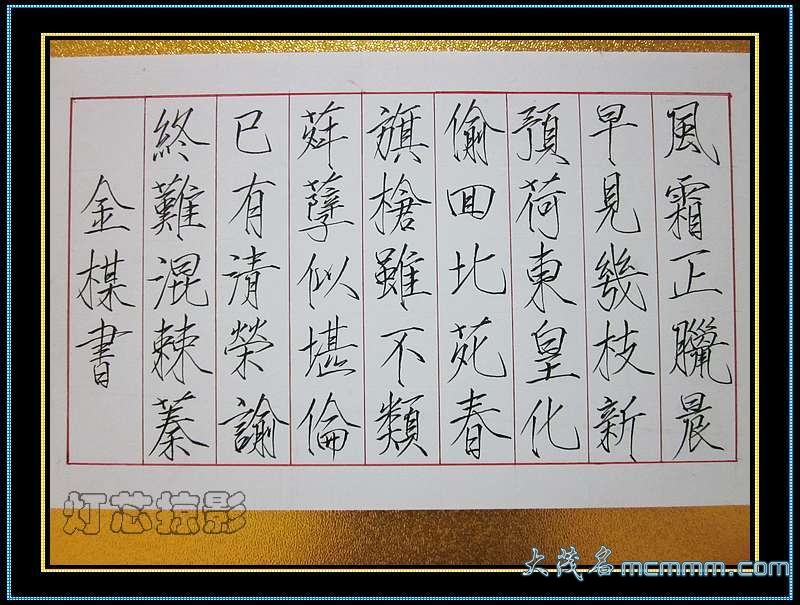 風霜正臘晨
早見幾枝新
預荷東皇化
偷回北苑春
旗槍雖不類
荈孽似堪倫
已有清榮諭
終難混棘蓁
金楳書
灯芯掠影
大茂名mcmmm.com